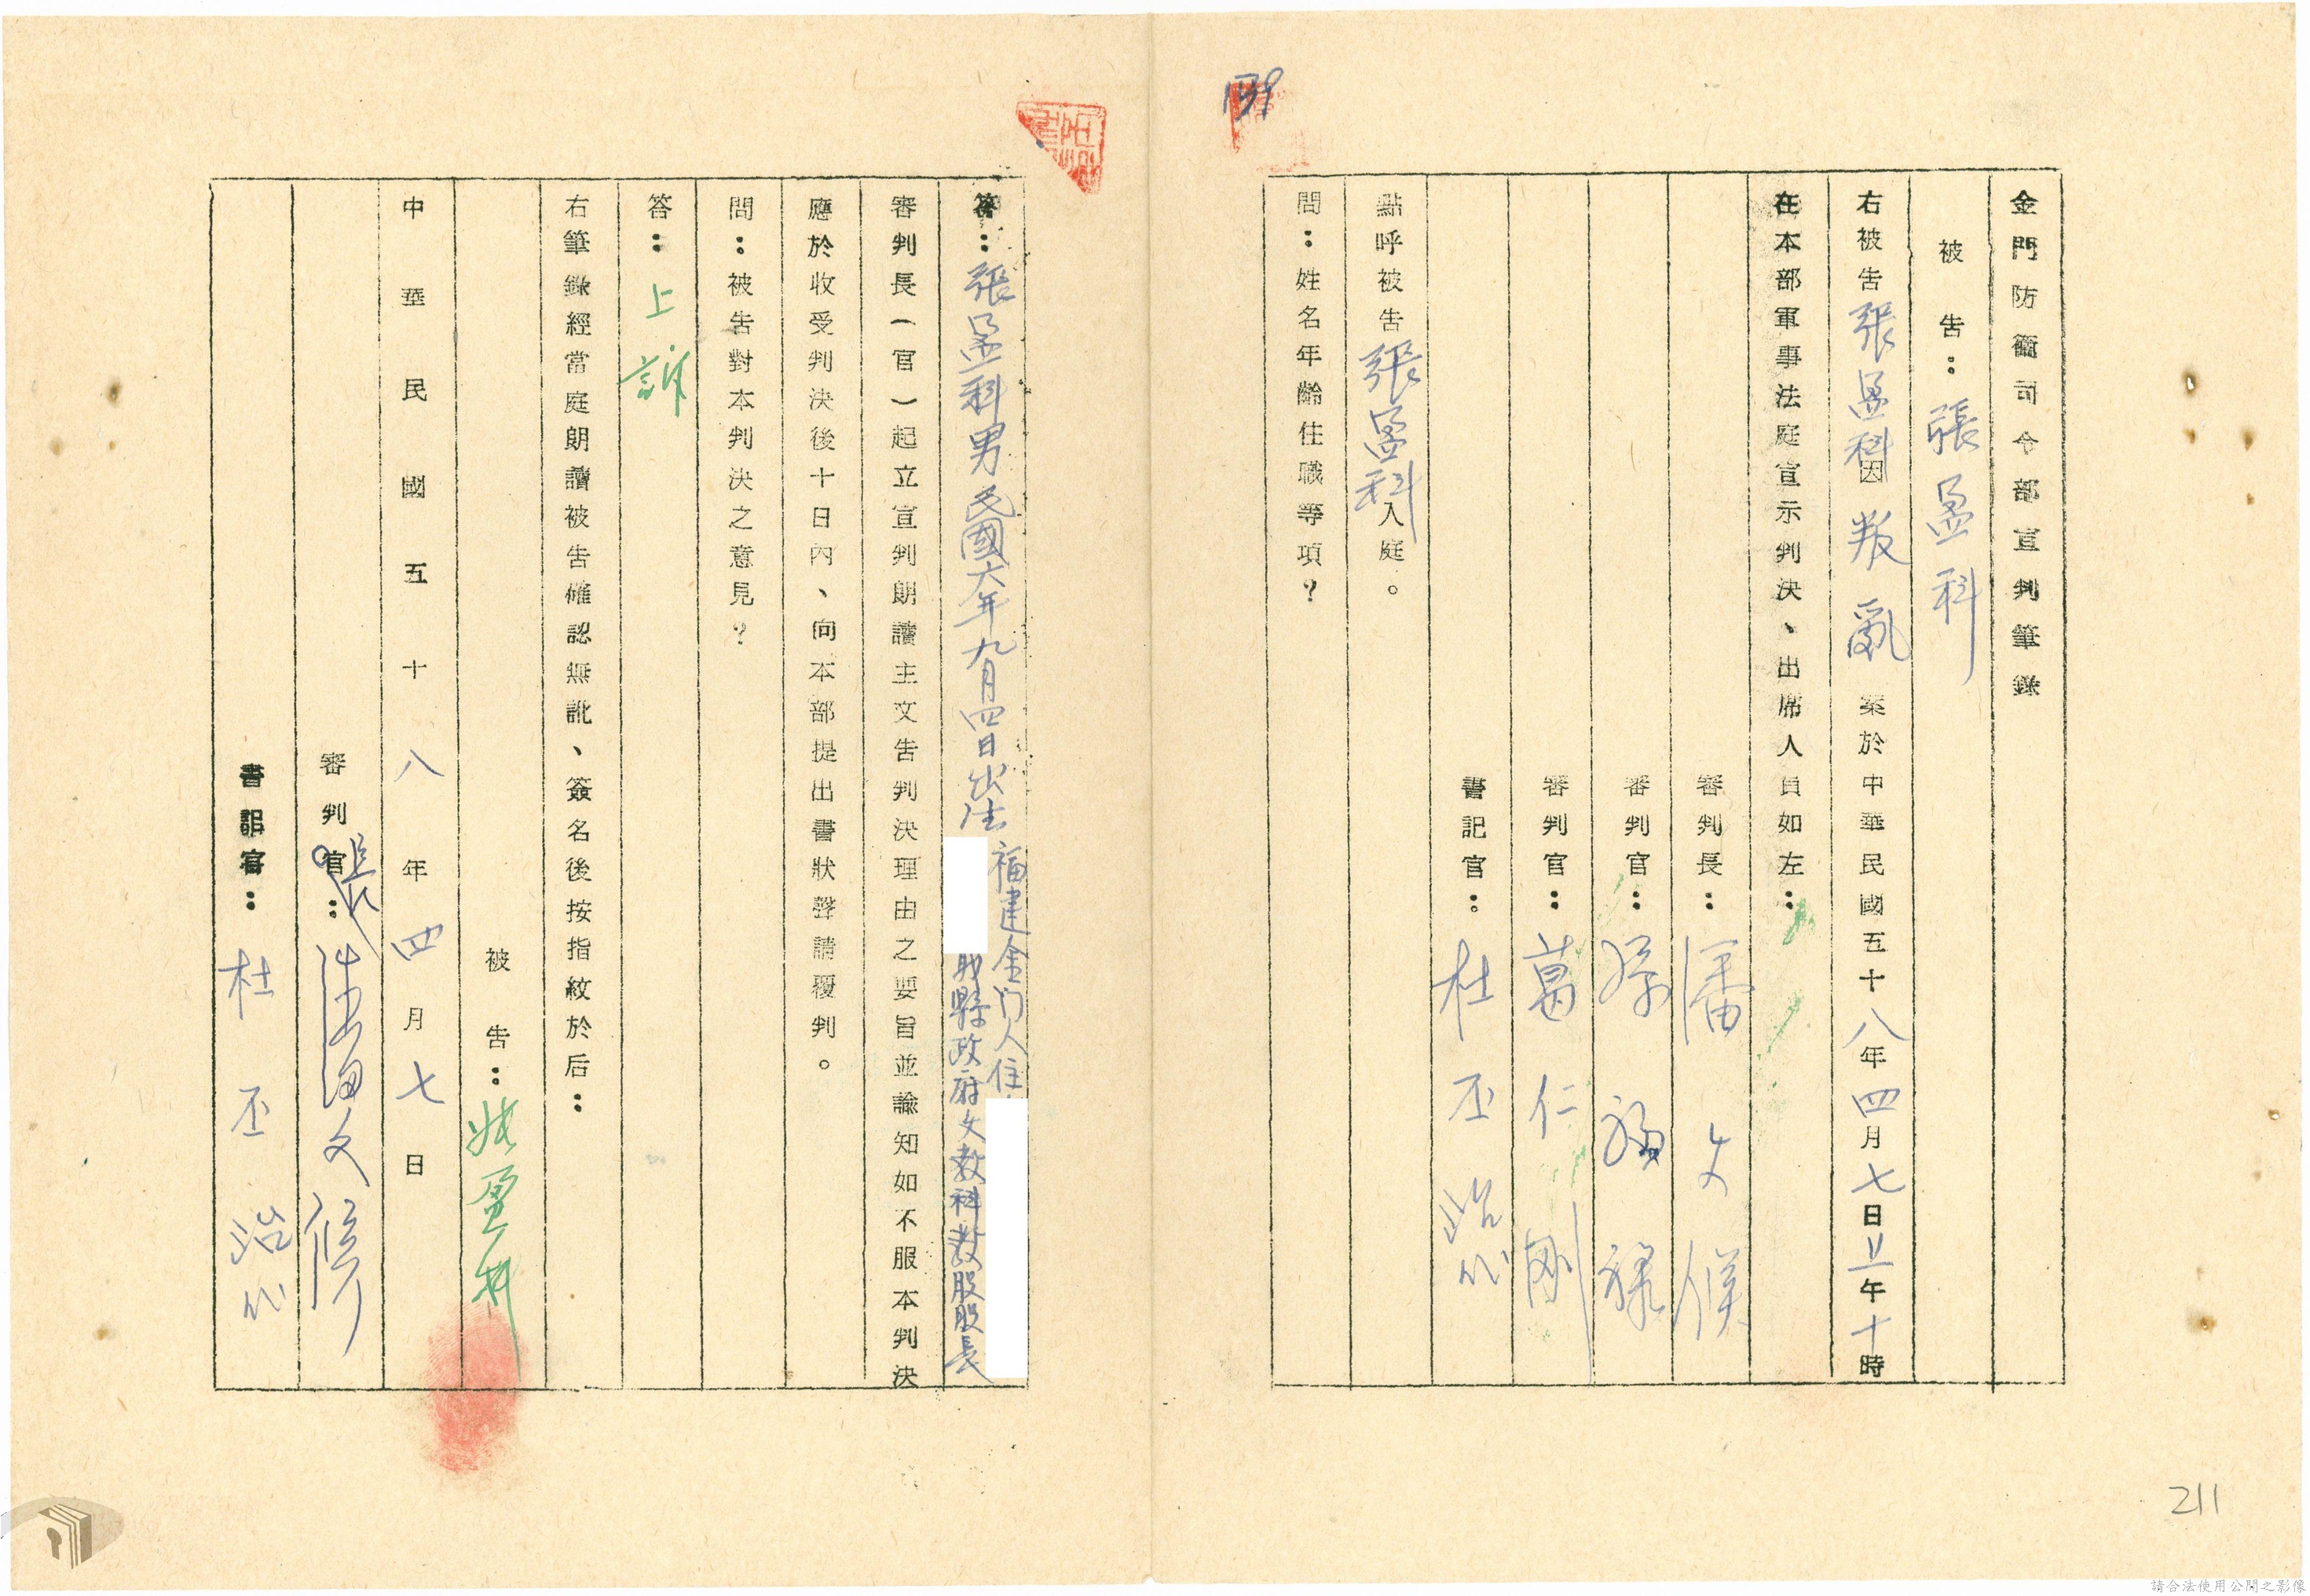 金門防衛司令部宣判筆錄
被告：張盈科
右被告張盈科因叛亂案於中華民國五十八年四月七日上午十時
在本部軍事法庭宣示判決、出席人員如左：
審判長：潘文俊
審判官：孫福祿
審判官：葛仁剛
書記官：杜丕詒代
點呼被告張盈科入庭。
問：姓名年齡住職等項？
答：張盈科男民國六年九月四日出生福建金門人住
縣政府文教科教股股長
審判長（官）起立宣判朗讀主文告判決理由之要旨並諭知如不服本判決
應於收受判決後十日內、向本部提出書狀聲請覆判。
問：被告對本判決之意見？
答：上訴
右筆錄經當庭朗讀被告確認無訛、簽名後按指紋於后：
被告：張盈科
中華民國五十八年四月七日
審判官長：潘文俊
書記官：杜丕詒代
211
請合法使用公開之影像